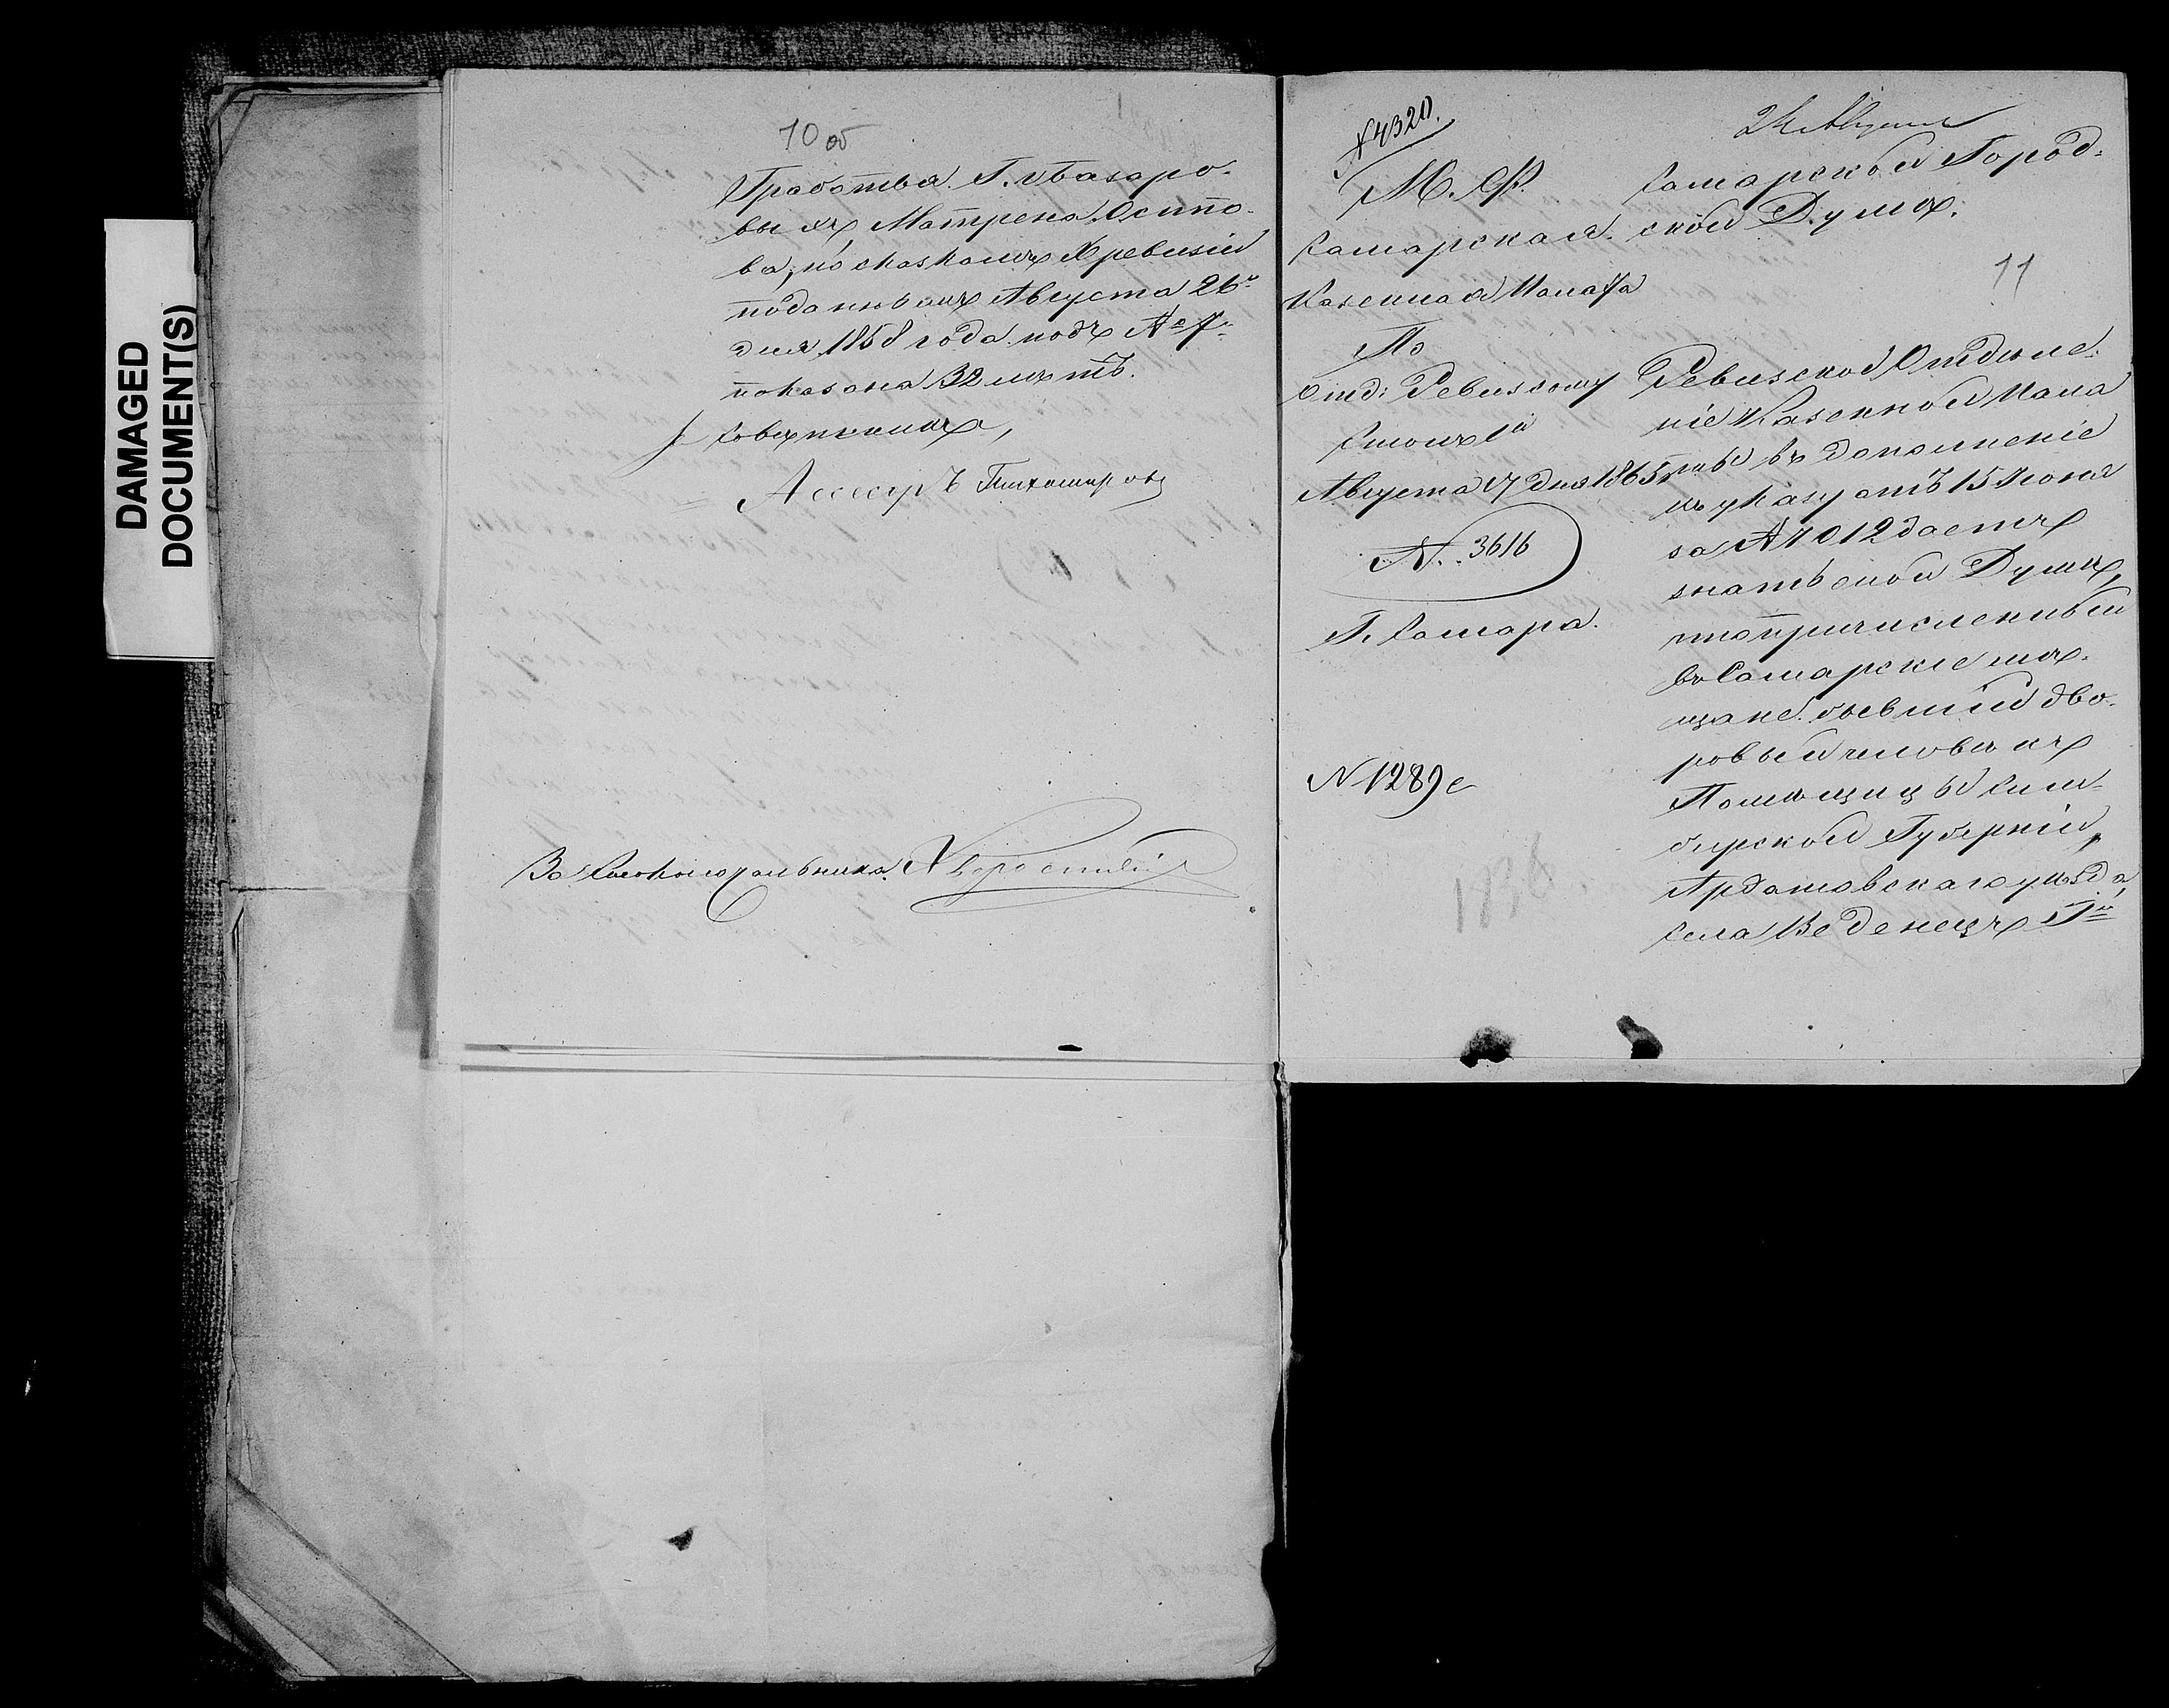 DAMAGED
DOCUMENT(S)
10 об
Тработва. Г. Назаро-
выхъ Матрена Осипо-
ва, по сказкамъ X ревизіи
поданнымъ Августа 26го
дня 1858 года подъ №
показана 32 лѣтъ.
Совѣтникъ,
Ассесоръ Тихомировъ
За Столоначальника
№ 4320.
М. Ф.
Самарская
Казенная Палата
По
Отд: Ревизскому
Столъ 1й
Августа 17 дня 1865 г.
N. 3616
Г. Самара.
N 1289
24 Августа
Самарской Город-
ской Думѣ.
11
Ревизское Отдѣле-
ніе Казенной Пала
ты въ дополненіе
къ указу отъ 15 Іюня
за № 4012 даетъ
знать оной Думѣ,
что причисленный
въ Самарскіе мѣ-
щане бывшій дво-
ровый человѣкъ
Помѣщицы Сим-
бирской Губерніи,
Ардатовскаго уѣзда,
села Веденецъ Гжи